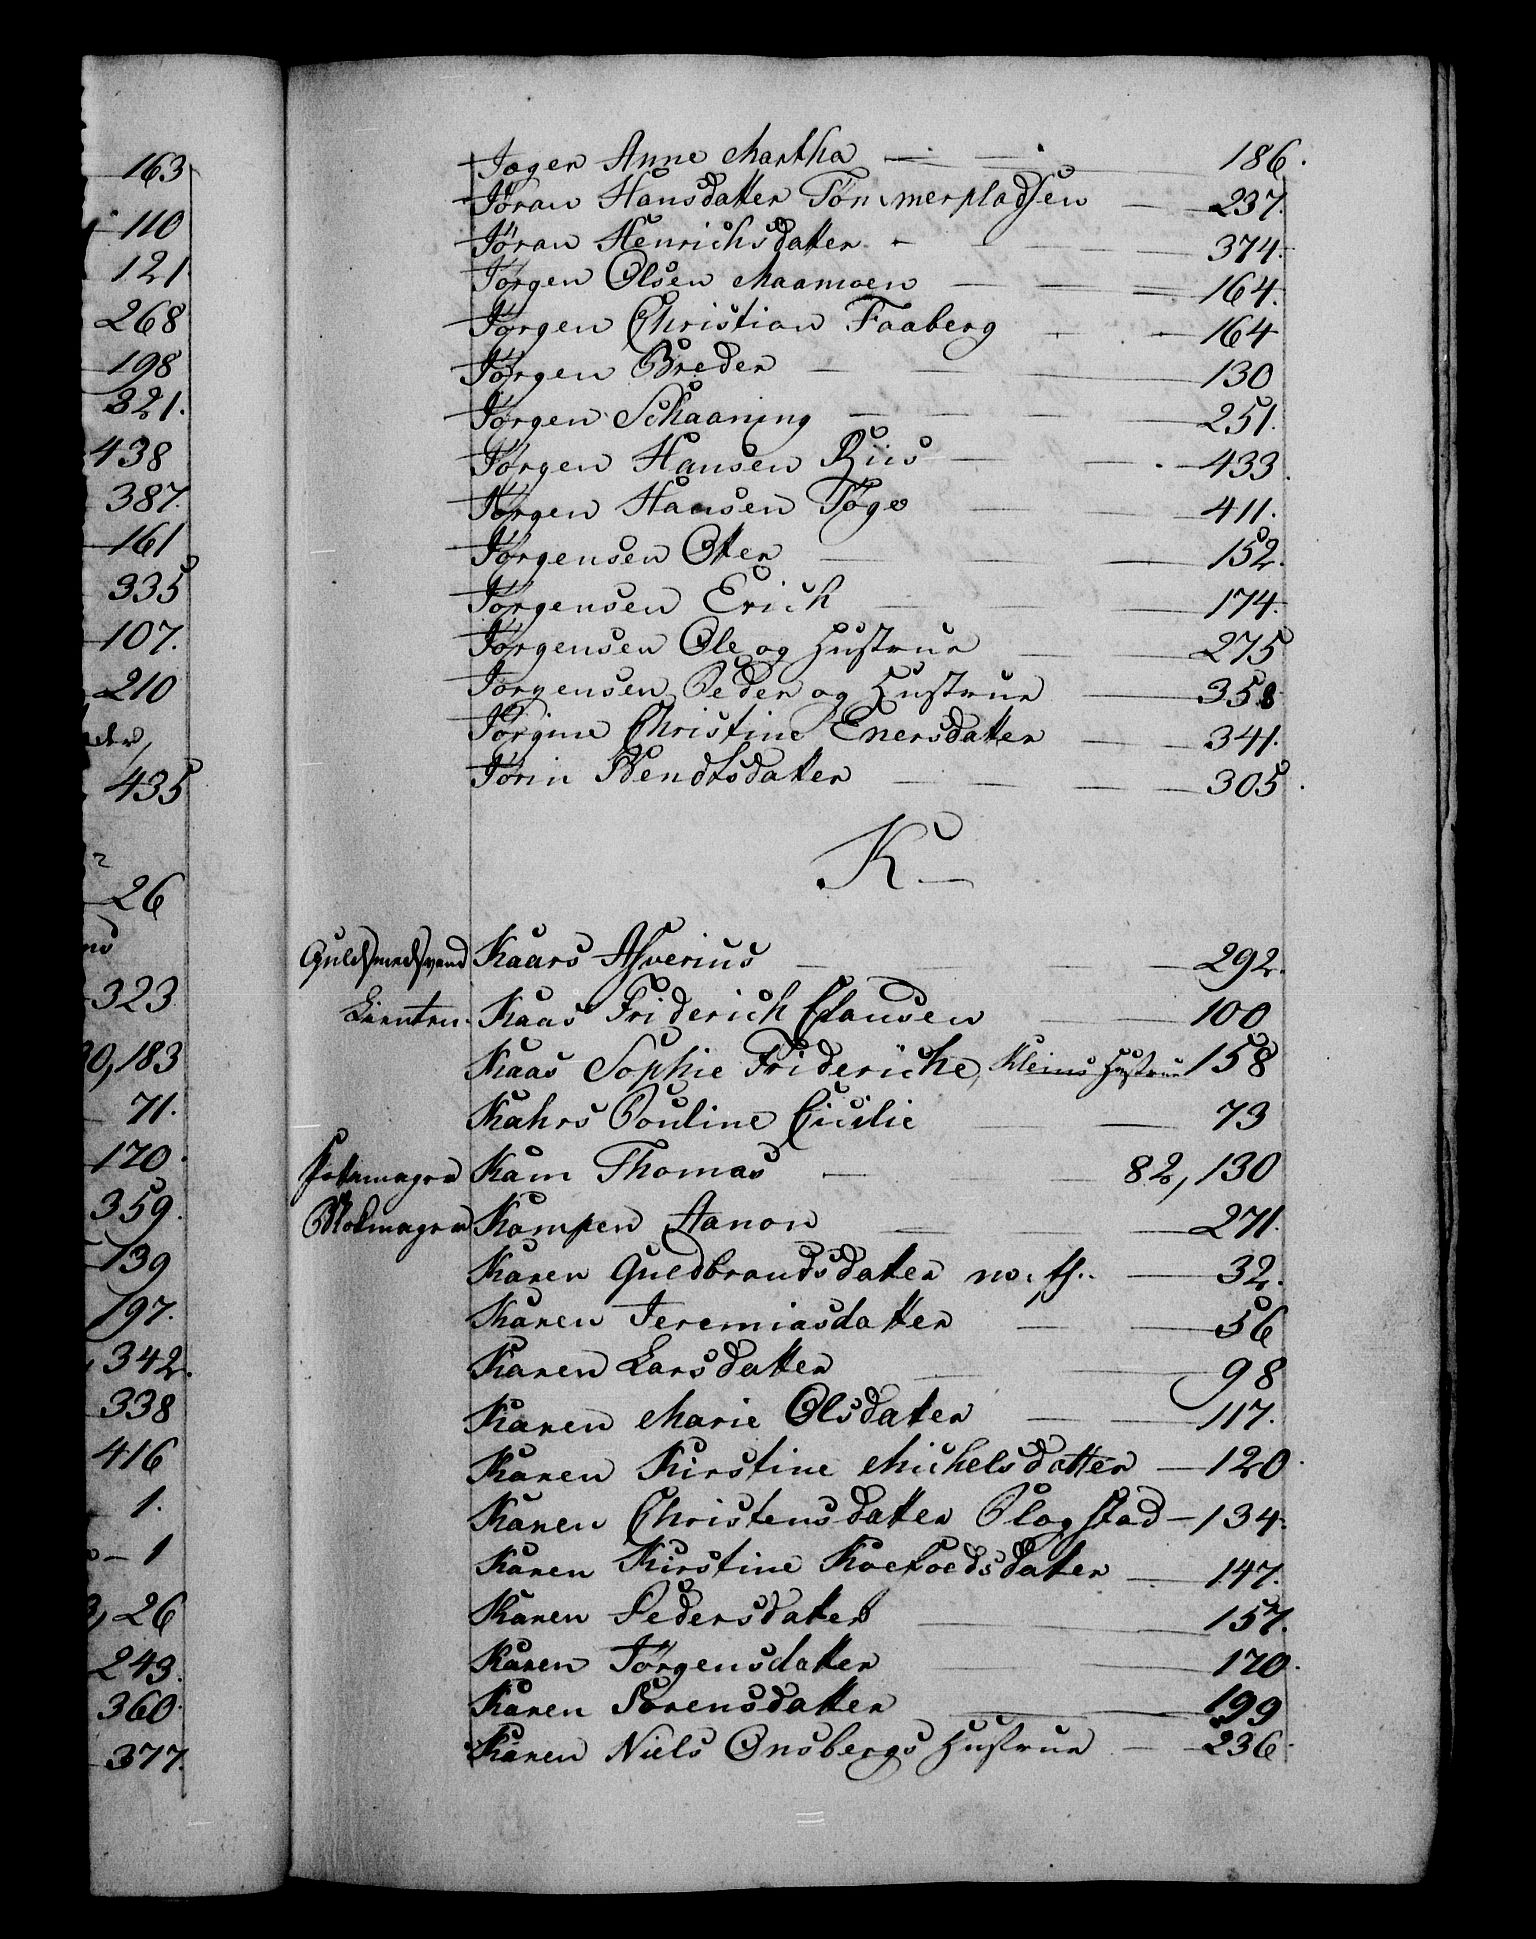 163
110
121
268
198
321.
438
387.
161
335
107.
210
435
26
323
183
71.
170.
359.
139
197.
342.
338
416
1.
1
26
243.
360.
377.
Jæger Anne Martha — 186.
Jøran Hansdatter Tømmerpladsen — 237.
Jøran Henrichsdatter — 374.
Jørgen Olsen Maamoen — 164.
Jørgen Christian Faaberg — 164
Jørgen Breder — 130
Jørgen Schaaning — 251.
Jørgen Hansen Riis — 433.
Jørgen Hansen Tøge — 411.
Jørgensen Otter — 152.
Jørgensen Erich — 174.
Jørgensen Ole og Hustrue — 275
Jørgensen Peder og Hustrue — 358
Jørgine Christine Enersdatter — 341.
Jørin Bendtsdatter — 305.
K
Guldsmedsvend Kaars Asverius — 292.
Lieuten. Kaas Friderich Clausen — 100
Kaas Sophie Frideriche, Kleins Hustrue 158
Kahrs Pouline Cicilie — 73
Kam Thomas — 82, 130
Blokmager Kampen Aanon — 271.
Karen Guldbrandsdatter — 32.
Karen Jeremiasdatter — 56
Karen Larsdatter — 98
Karen Marie Olsdatter — 117.
Karen Kirstine Michelsdatter — 120.
Karen Christensdatter Plogstad — 134.
Karen Kirstine Koefoedsdatter — 147.
Karen Pedersdatter — 157.
Karen Jørgensdatter — 170.
Karen Sørensdatter — 199
Karen Niels Onsbergs Hustrue — 236.